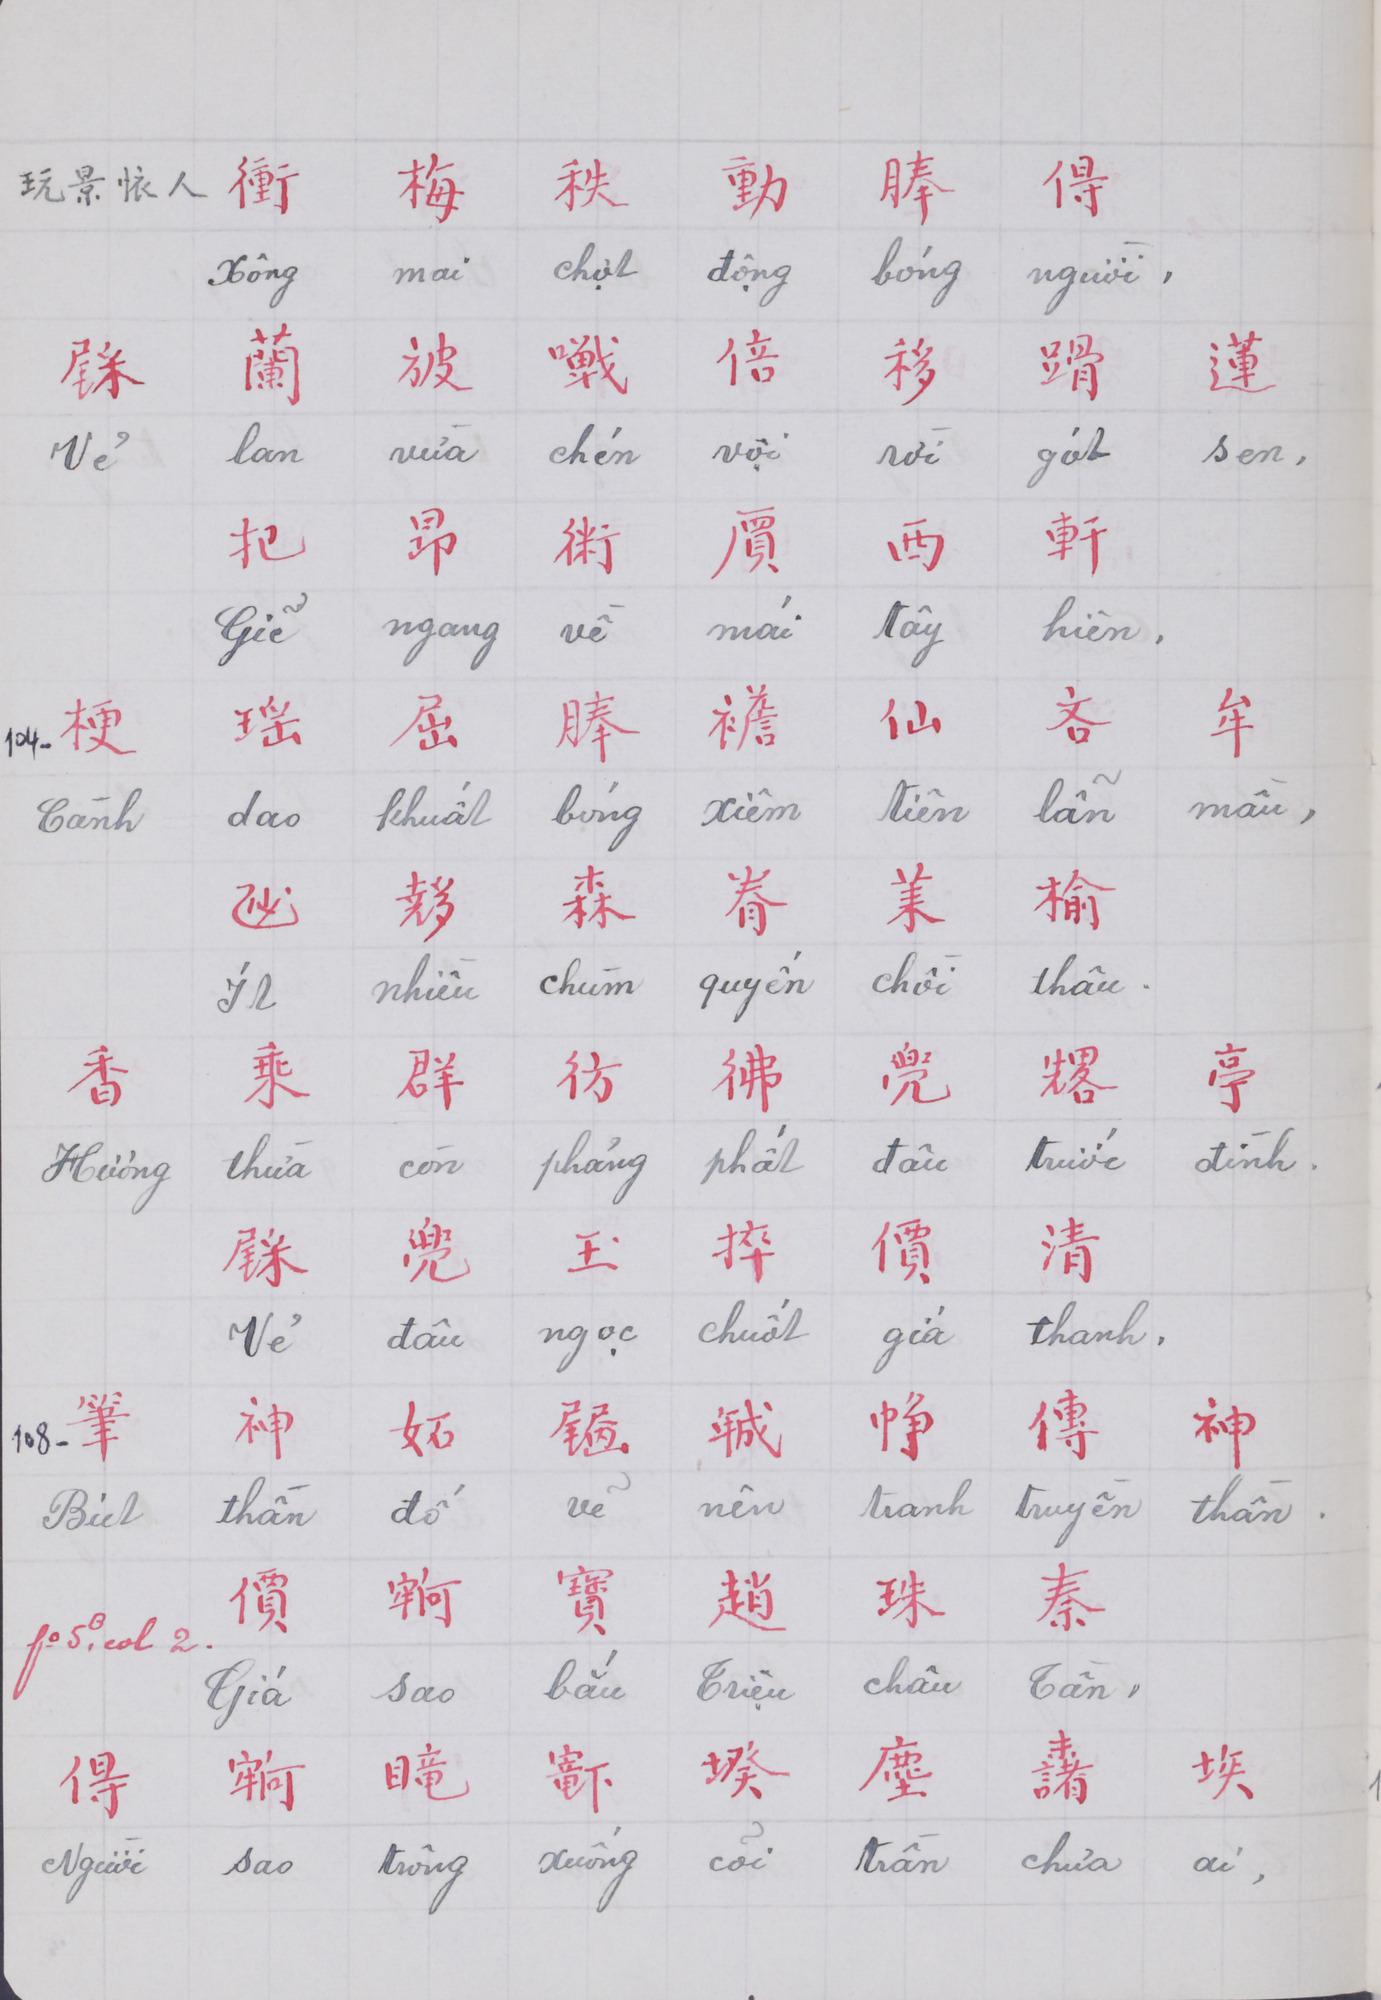 玩景懷人 衝 梅 秩 動 𦝺 㝵
Xông mai chợt động bóng người,
蘭 披 嘰 倍 移 蓮
Vẻ lan vừa chén vội rời gót sen,
把 昂 術 西 軒
Giẽ ngang về mái tây hiên,
104- 梗 瑶 屈 𦝺 襜 仙 吝 牟
Cành dao khuất bóng xiêm tiên lẫn mầu,
森 眷 榆
Ít nhiều chùm quyến chồi thâu.
香 乘 群 彷 彿 兜 亭
Hương thừa còn phảng phất đâu trước đình.
兜 玉 捽 價 清
Vẻ đâu ngọc chuốt giá thanh,
108- 筆 神 妬 幀 傳 神
Biết thần đố vẽ nên tranh truyền thần.
f° 5.B col 2. 價 寶 趙 珠 秦
Giá sao bấu Triệu châu Tần,
得 塵 埃
Người sao trông xuống cõi trần chửa ai,